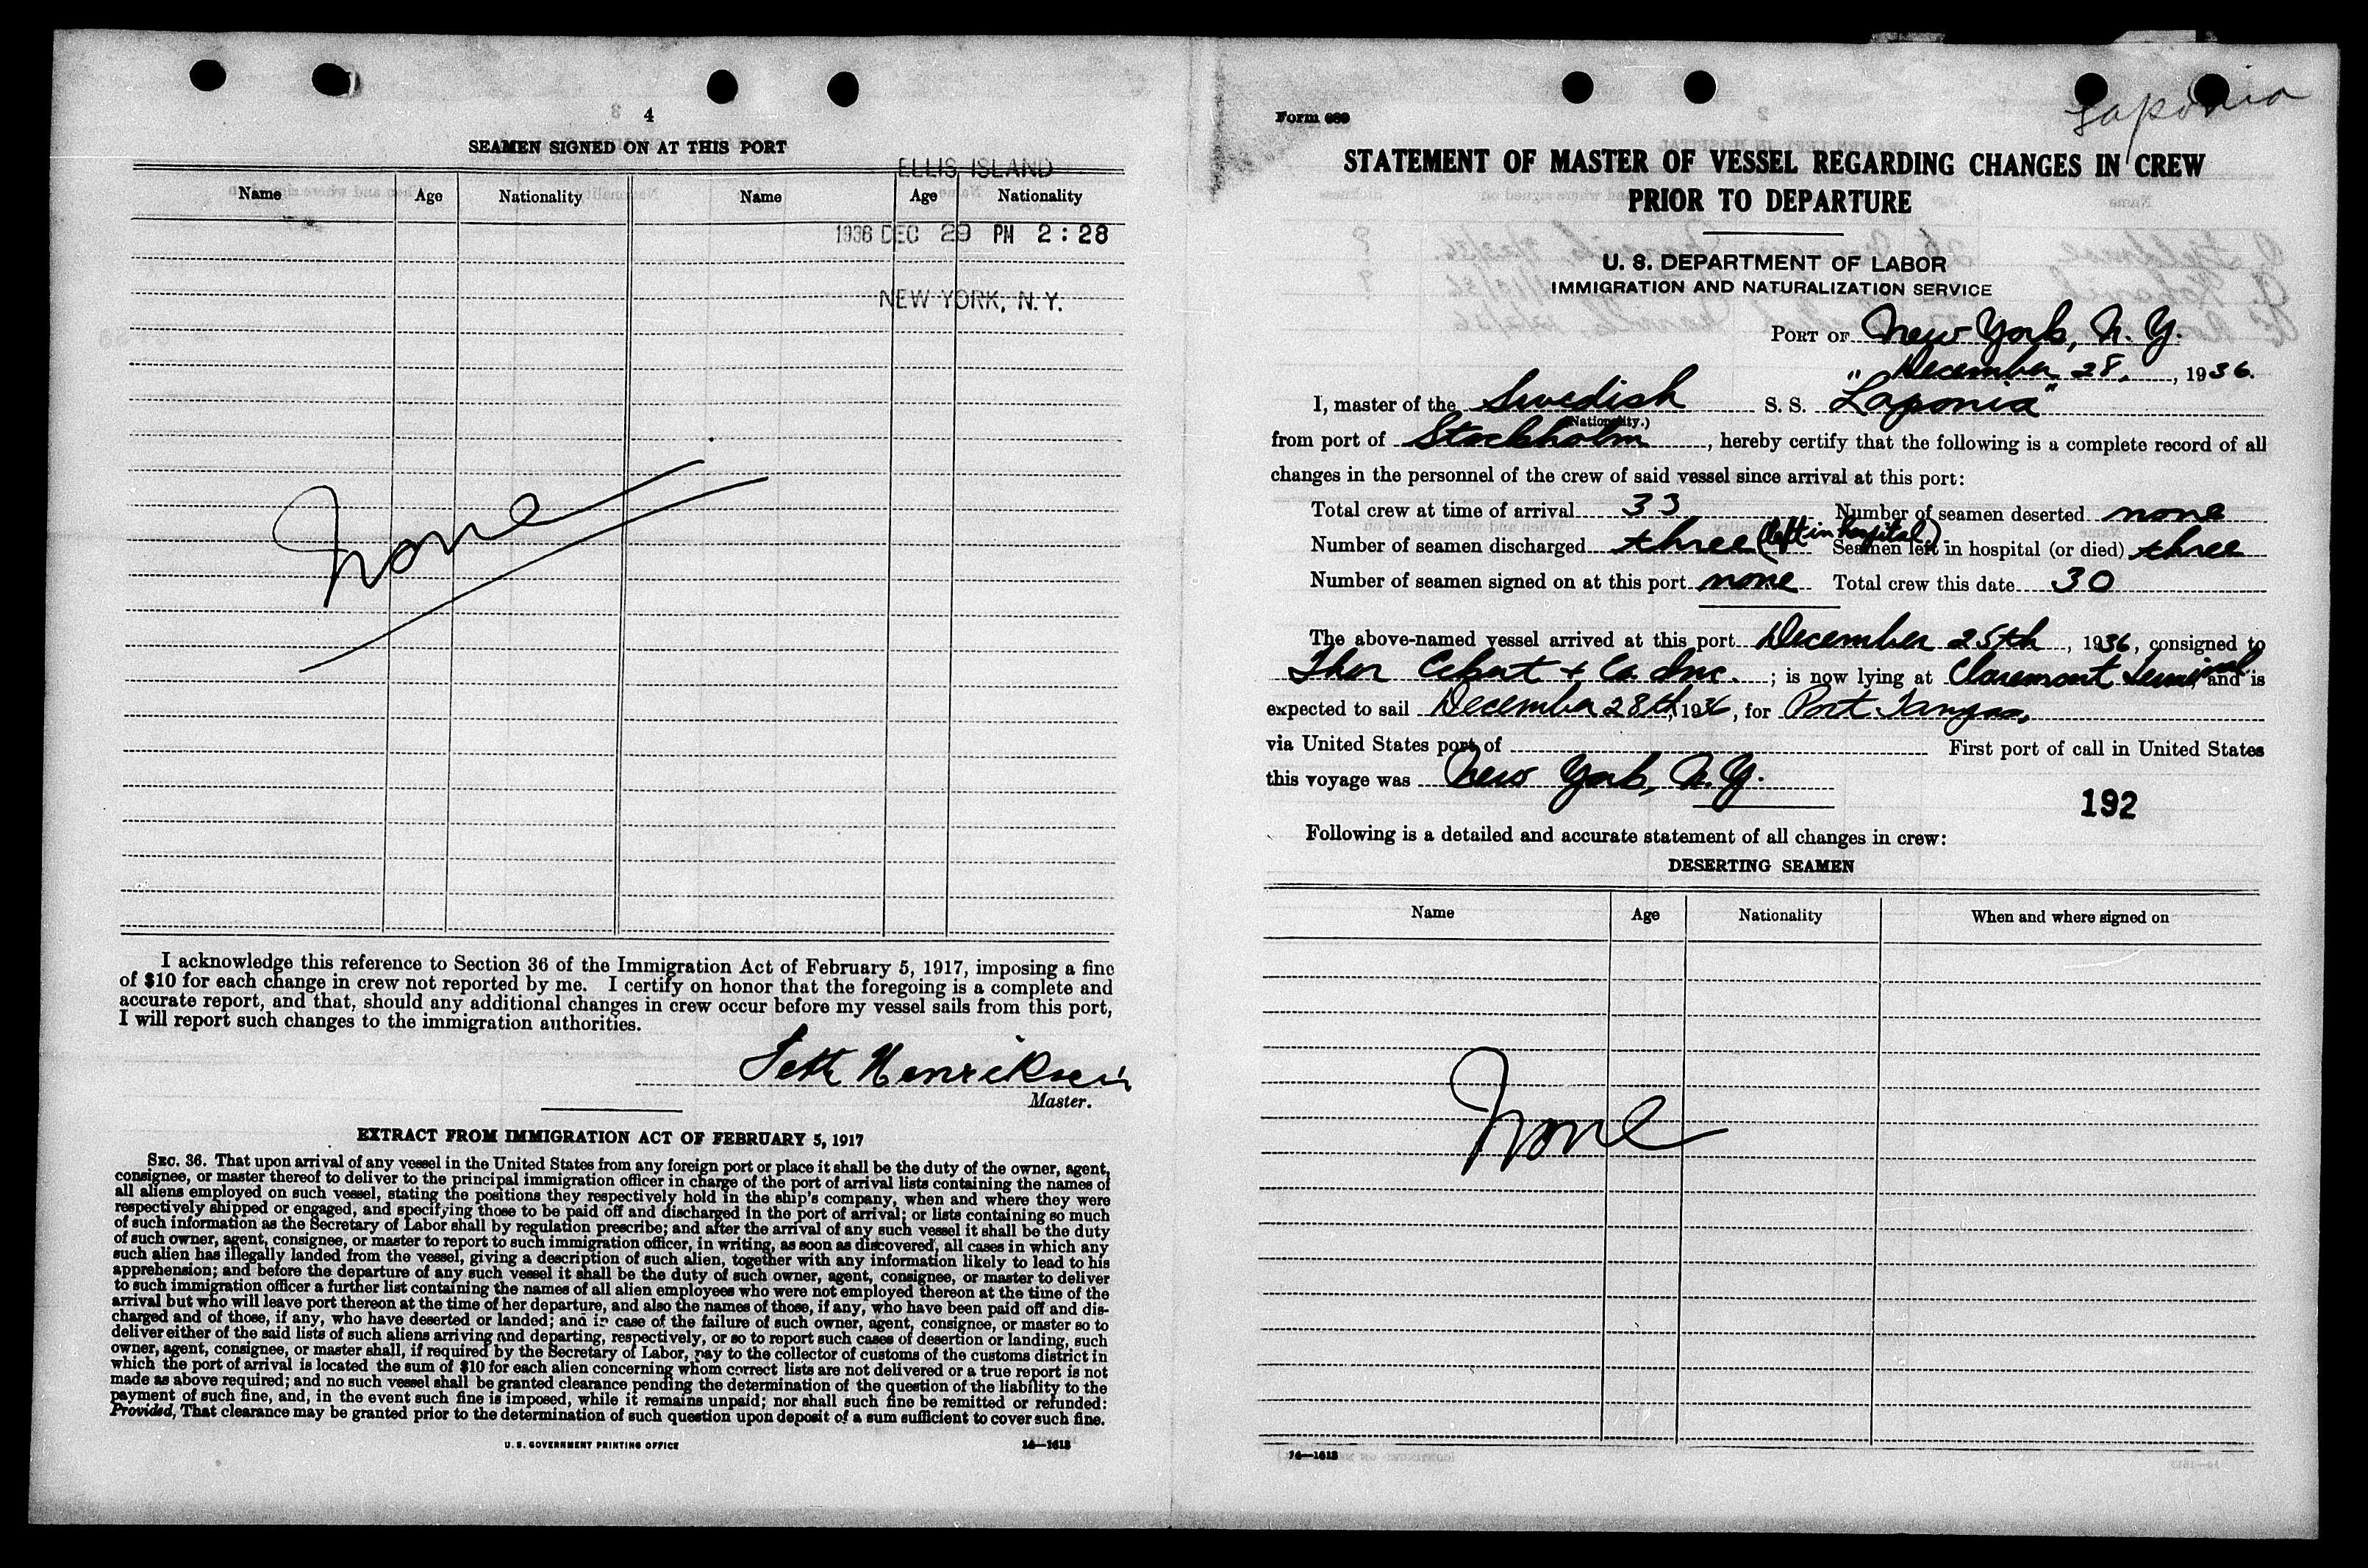 4
SEAMEN SIGNED ON AT THIS PORT
ELLIS ISLAND
Name Age Nationality Name Age Nationality
1936 DEC 29 PM 2:28
NEW YORK, N.Y.
None
I acknowledge this reference to Section 36 of the Immigration Act of February 5, 1917, imposing a fine
of $10 for each change in crew not reported by me. I certify on honor that the foregoing is a complete and
accurate report, and that, should any additional changes in crew occur before my vessel sails from this port,
I will report such changes to the immigration authorities.
Seth Henriksen
Master.
EXTRACT FROM IMMIGRATION ACT OF FEBRUARY 5, 1917
SEC. 36. That upon arrival of any vessel in the United States from any foreign port or place it shall be the duty of the owner, agent,
consignee, or master thereof to deliver to the principal immigration officer in charge of the port of arrival lists containing the names of
all aliens employed on such vessel, stating the positions they respectively hold in the ship's company, when and where they were
respectively shipped or engaged, and specifying those to be paid off and discharged in the port of arrival; or lists containing so much
of such information as the Secretary of Labor shall by regulation prescribe; and after the arrival of any such vessel it shall be the duty
of such owner, agent, consignee, or master to report to such immigration officer, in writing, as soon as discovered, all cases in which any
such alien has illegally landed from the vessel, giving a description of such alien, together with any information likely to lead to his
apprehension; and before the departure of any such vessel it shall be the duty of such owner, agent, consignee, or master to deliver
to such immigration officer a further list containing the names of all alien employees who were not employed thereon at the time of the
arrival but who will leave port thereon at the time of her departure, and also the names of those, if any, who have been paid off and dis-
charged and of those, if any, who have deserted or landed; and in case of the failure of such owner, agent, consignee, or master so to
deliver either of the said lists of such aliens arriving and departing, respectively, or so to report such cases of desertion or landing, such
owner, agent, consignee, or master shall, if required by the Secretary of Labor, pay to the collector of customs of the customs district in
which the port of arrival is located the sum of $10 for each alien concerning whom correct lists are not delivered or a true report is not
made as above required; and no such vessel shall be granted clearance pending the determination of the question of the liability to the
payment of such fine, and, in the event such fine is imposed, while it remains unpaid; nor shall such fine be remitted or refunded:
Provided, That clearance may be granted prior to the determination of such question upon deposit of a sum sufficient to cover such fine.
U. S. GOVERNMENT PRINTING OFFICE 14—1613
Laponia
Form 689
STATEMENT OF MASTER OF VESSEL REGARDING CHANGES IN CREW
PRIOR TO DEPARTURE
U. S. DEPARTMENT OF LABOR
IMMIGRATION AND NATURALIZATION SERVICE
PORT OF New York, N. Y.
December 28, 1936.
I, master of the Swedish S. S. "Laponia"
(Nationality.)
from port of Stockholm, hereby certify that the following is a complete record of all
changes in the personnel of the crew of said vessel since arrival at this port:
Total crew at time of arrival 33 Number of seamen deserted none
Number of seamen discharged three (left in hospital) Seamen left in hospital (or died) three
Number of seamen signed on at this port none Total crew this date 30
The above-named vessel arrived at this port December 25th, 1936, consigned to
Thor & Co. Inc.; is now lying at Claremont Terminal, and is
expected to sail December 28th, 1936, for Port
via United States port of First port of call in United States
this voyage was New York, N.Y.
192
Following is a detailed and accurate statement of all changes in crew:
DESERTING SEAMEN
Name Age Nationality When and where signed on
None
14—1613